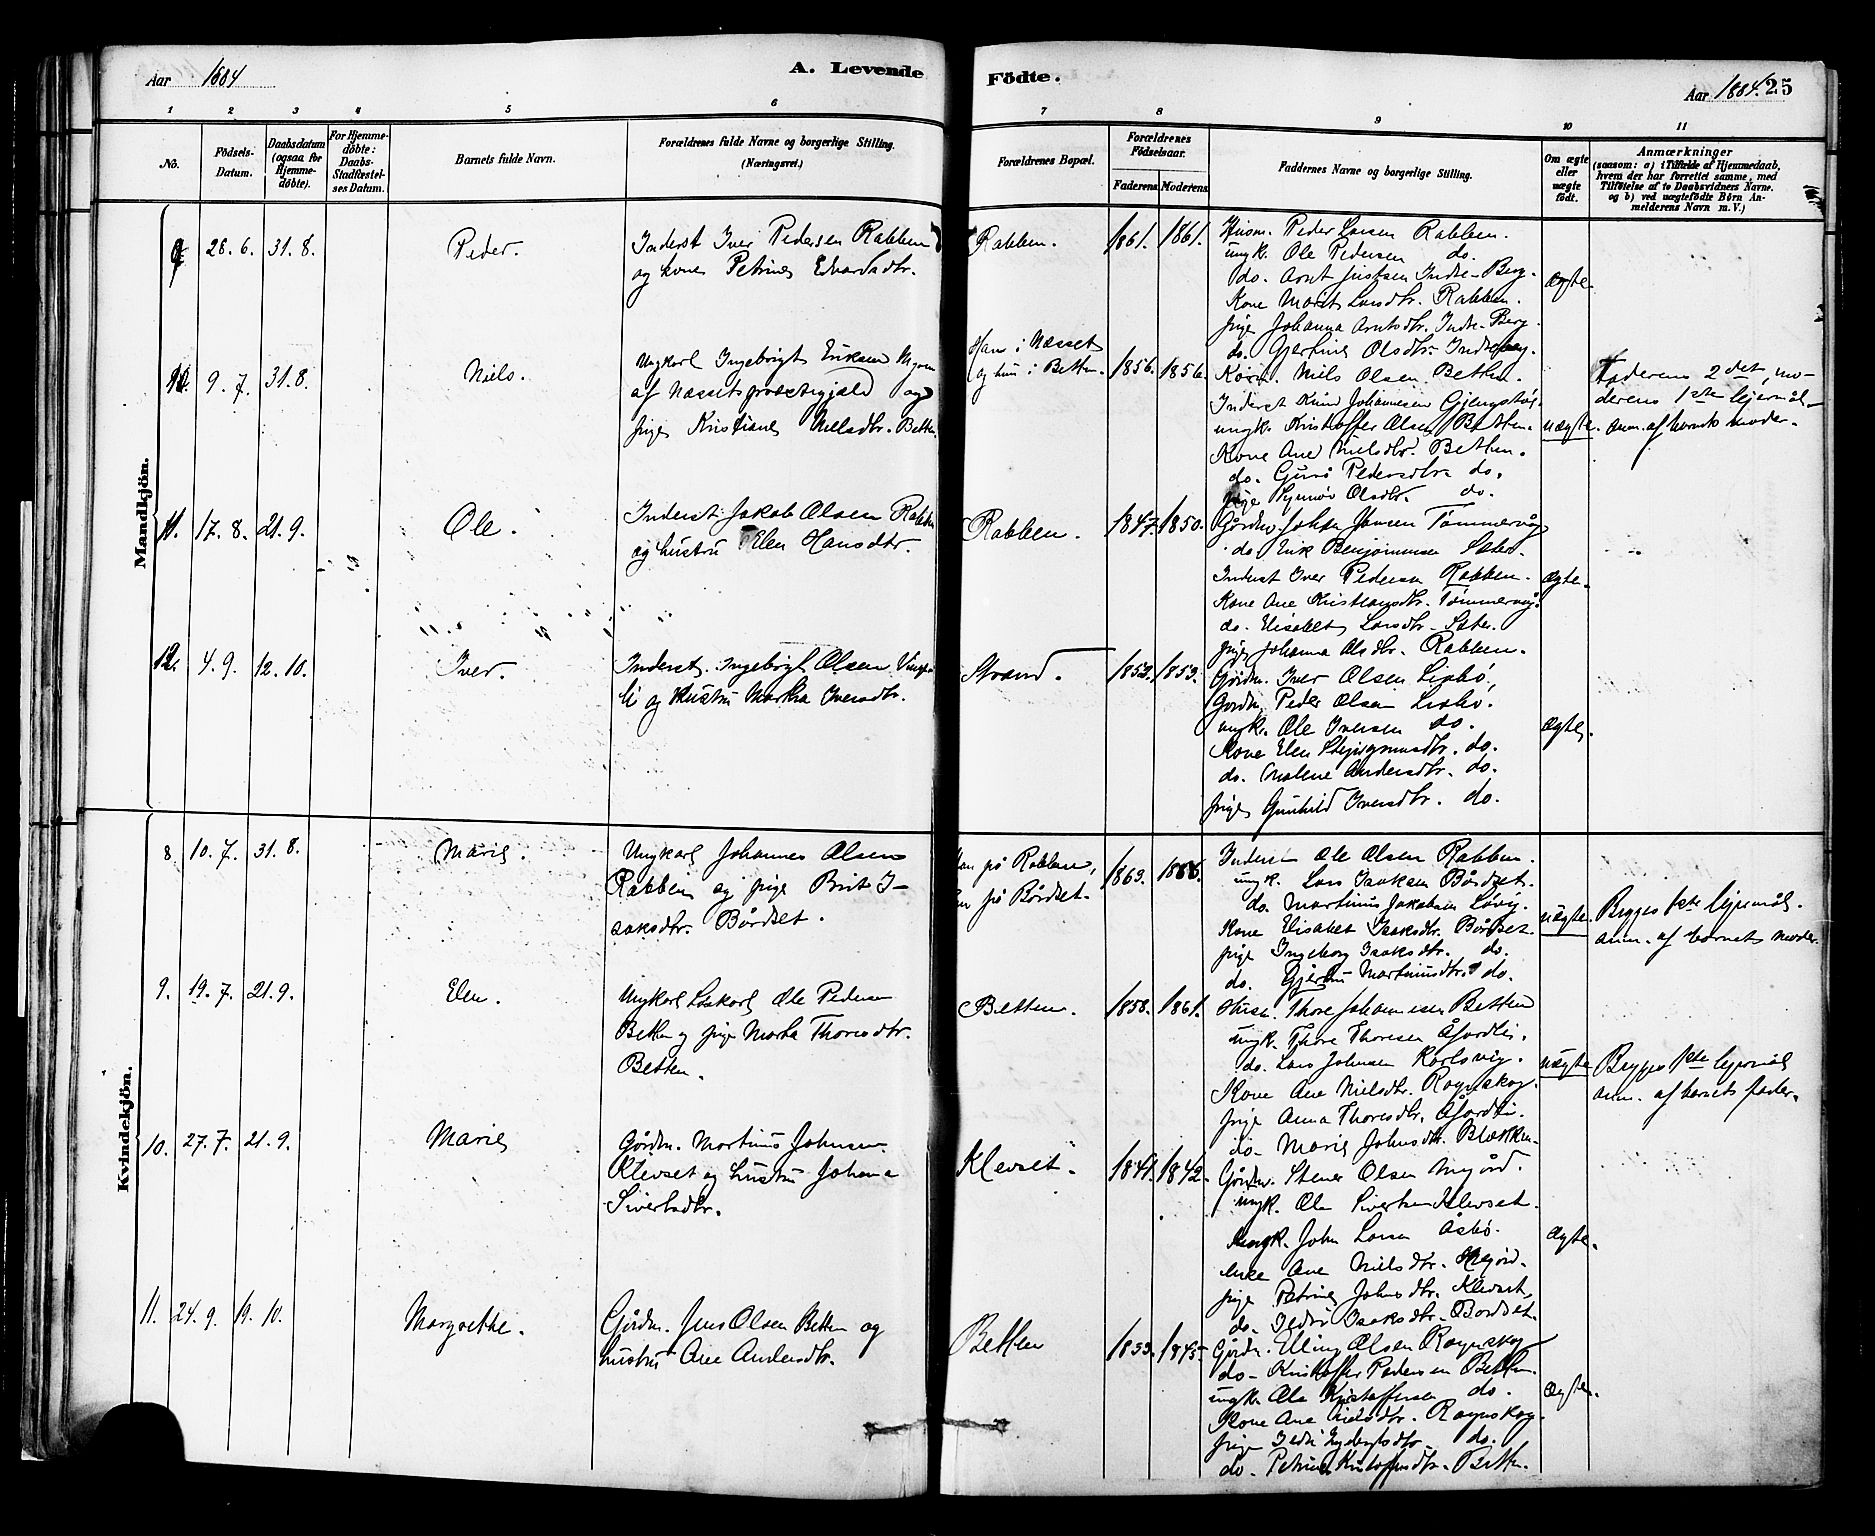 Aar 1884
A. Levende
Födte.
Aar 1884. 25
1 2 3 4 5 6 7 8 9 10 11
No.
Födsels-
Datum.
Daabsdatum
(ogsaa for
Hjemme-
döbte).
For Hjemme-
döbte:
Daabs-
Stadfæstel-
ses Datum.
Barnets fulde Navn.
Forældrenes fulde Navne og borgerlige Stilling.
(Næringsvei.)
Forældrenes Bopæl.
Forældrenes
Födselsaar.
Faderens. Moderens.
Faddernes Navne og borgerlige Stilling.
Om ægte
eller
uægte
födt.
Anmærkninger
(saasom: a) i Tilfælde af Hjemmedaab,
hvem der har forrettet samme, med
Tilföielse af to Daabsvidners Navne.
og b) ved uægtefödte Börn An-
melderens Navn m. V.)
Mandkjön.
9 28. 6. 31. 8. Peder.
Inderst Iver Pedersen Rabben
og kone Petrine Edvardsdtr.
Rabben. 1861. 1861.
Husm. Peder Larsen Rabben.
ungk. Ole Pedersen do.
do. Arnt Jensen Indre-Berg.
Kone Marit Larsdtr. Rabben.
pige Johanna Arntsdtr. Indre-Berg.
do. Gjertine Olsdtr. Indreberg.
ægte
10. 9. 7. 31. 8. Niels.
Ungkarl Ingebrigt Eriksen
af Næssets præstegjæld og
pige Kristiane Nielsdtr. Betten.
Han i Næsset
og hun i Betten. 1856. 1856.
Niels Olsen Betten.
Inderst Knud Johannesen
ungk. Kristoffer Olsen Betten.
Kone Ane Nielsdtr. Betten.
do. Guro Pedersdtr. do.
pige Synnøv Olsdtr. do.
uægte.
Faderens 2det, mo-
derens 1ste lejermål.
anm. af barnets moder.
11. 17. 8. 21. 9. Ole.
Inderst Jakob Olsen Rabben
og hustru Elen Hansdtr.
Rabben. 1847. 1850.
Gårdm. Johan Jensen Tømmervåg
do. Erik Benjaminsen Sæter.
Inderst Iver Pedersen Rabben.
Kone Ane Kristiansdtr. Tømmervåg.
do. Elisabet Larsdtr. Sæter.
pige Johanna Olsdtr. Rabben.
ægte.
12. 4. 9. 12. 10. Iver.
Inderst Ingebrigt Olsen
og hustru Martha Iversdtr.
Strand. 1853. 1853.
Gårdm. Iver Olsen Lisbø,
Gårdm. Peder Olsen Lisbø.
ungk. Ole Iversen do.
Kone Elen do.
do. Malene Andersdtr. do.
pige Gunhild Iversdtr. do.
ægte.
Kvindekjön.
8. 10. 7. 31. 8. Marie.
Ungkarl Johannes Olsen
Rabben og pige Brit I-
saksdtr. Bårdset.
på Rabben,
på Bårdset. 1863. 1866.
Inderst Ole Olsen Rabben.
ungk. Lars Isaksen Bårdset.
do. Martinus Jakobsen
Kone Elisabet Isaksdtr. Bårdset.
pige Ingeborg Isaksdtr. do.
do. Martinusdtr. do.
uægte.
Begges 1ste lejermål.
anm. af barnets moder.
9. 19. 7. 21. 9. Elen.
Ungkarl Løskarl Ole Pedersen
Betten og pige Marta Thoresdtr.
Betten.
Betten. 1858. 1861.
Husm. Thore Johannesen Betten
ungk. Thore Thoresen
do. Lars Johnsen Karlsvig.
Kone Ane Nielsdtr. Rognskog.
pige Anna Thoresdtr.
do. Marie Johnsdtr. Blækken.
uægte
Begges 1ste lejermål
anm. af barnets fader.
10. 27. 7. 21. 9. Marie
Gårdm. Martinus Johnsen
Klevset og hustru Johanna
Sivertsdtr.
Klevset. 1841. 1842.
Gårdm. Stener Olsen Megård.
ungk. Ole Sivertsen Klevset.
ungk. John Larsen Åsbø.
enke Ane Nielsdtr. Megård.
pige Petrine Johnsdtr. Klevset.
do. Isaksdtr. Bårdset.
ægte.
11. 24. 9. 19. 10. Margrethe.
Gårdm. Jens Olsen Betten og
hustru Ane Andersdtr.
Betten 1833. 1845.
Gårdm. Elling Olsen Rognskog
do. Kristoffer Pedersen Betten.
ungk. Ole Kristoffersen do.
Kone Ane Nielsdtr. Rognskog.
pige Ingebrigtsdtr. do.
do. Petrine Kristoffersdtr. Betten.
ægte.